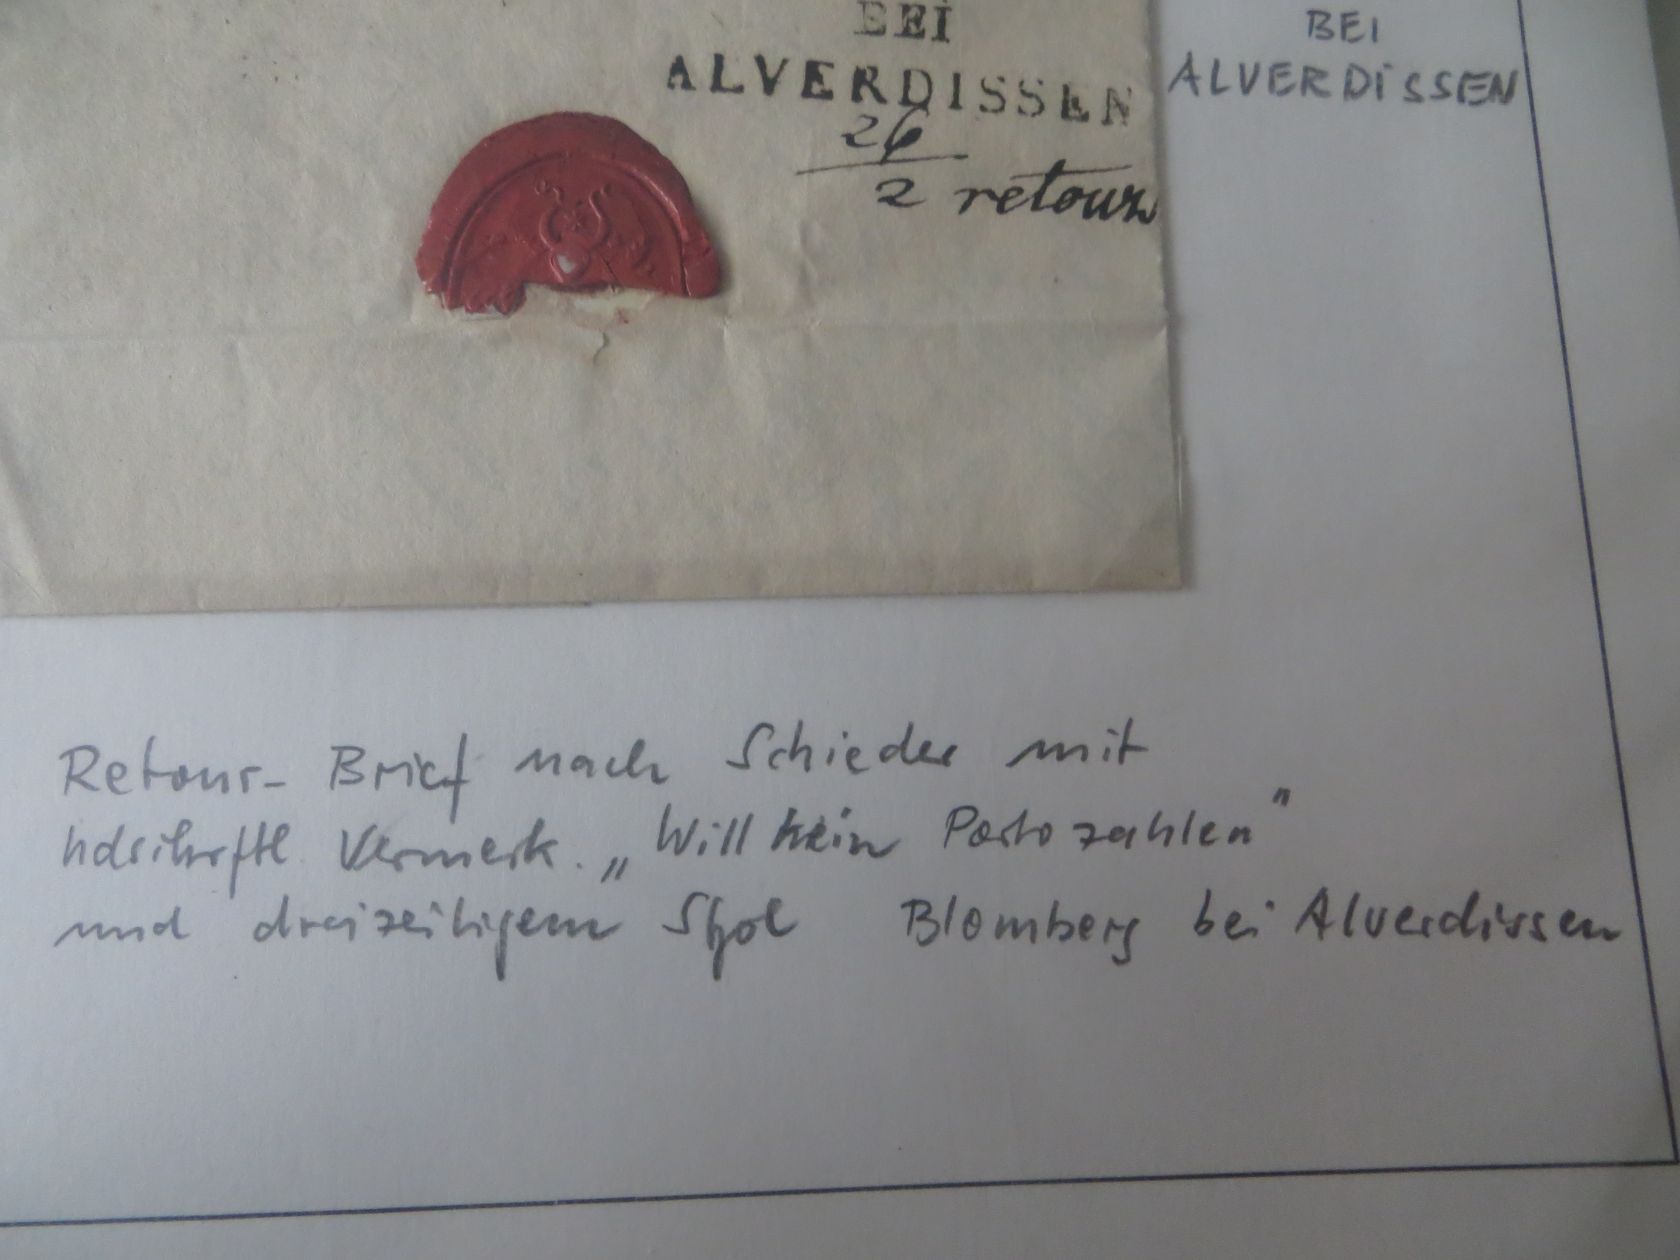 BEI
ALVERDISSEN
26
2 retour
BEI
ALVERDISSEN
Retour- Brief nach Schieder mit
hdschrftl. Vermerk. „Will kein Porto zahlen"
und dreizeiligem Stpl Blomberg bei Alverdissen